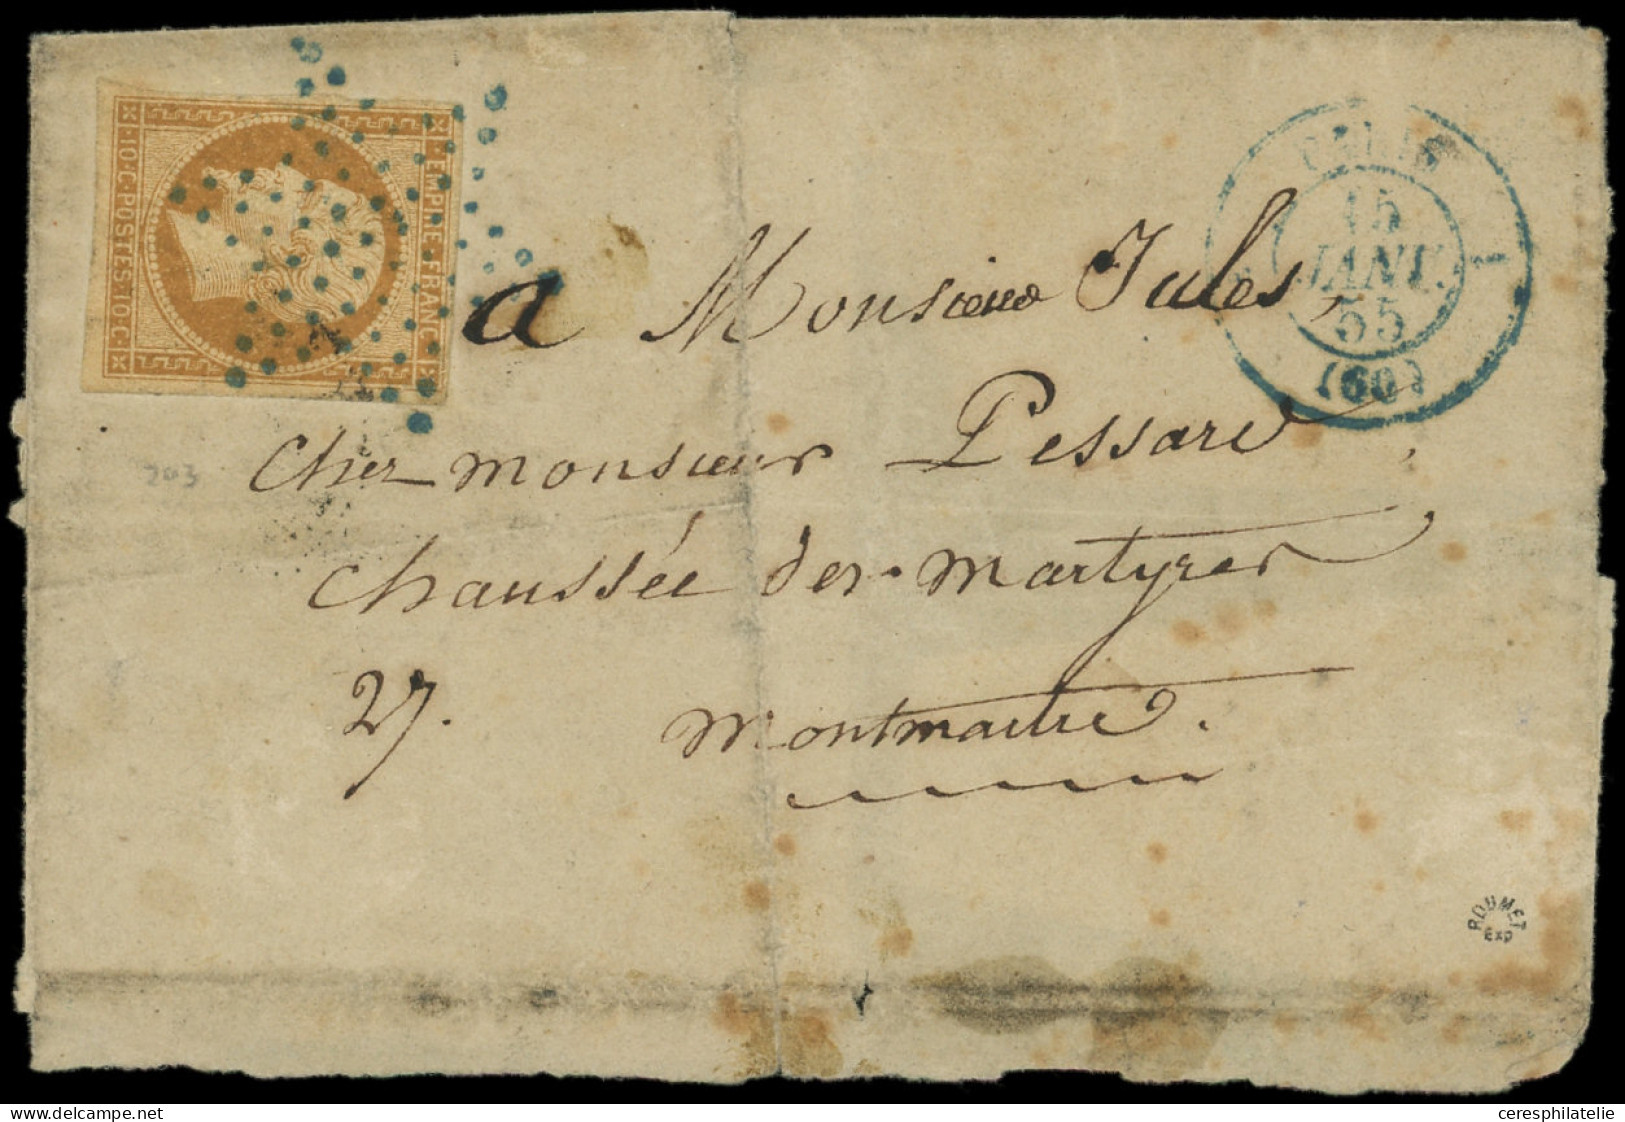 EMPIRE FRANC
10·C·POSTES·10·C
PARIS
15
JANV.
55
(60)
a Monsieur Jules,
Chez monsieur Pessard
chaussée des martyres
27. Montmartre.
203
ROUMET
Exp
ceresphilatelie
delcampe.net